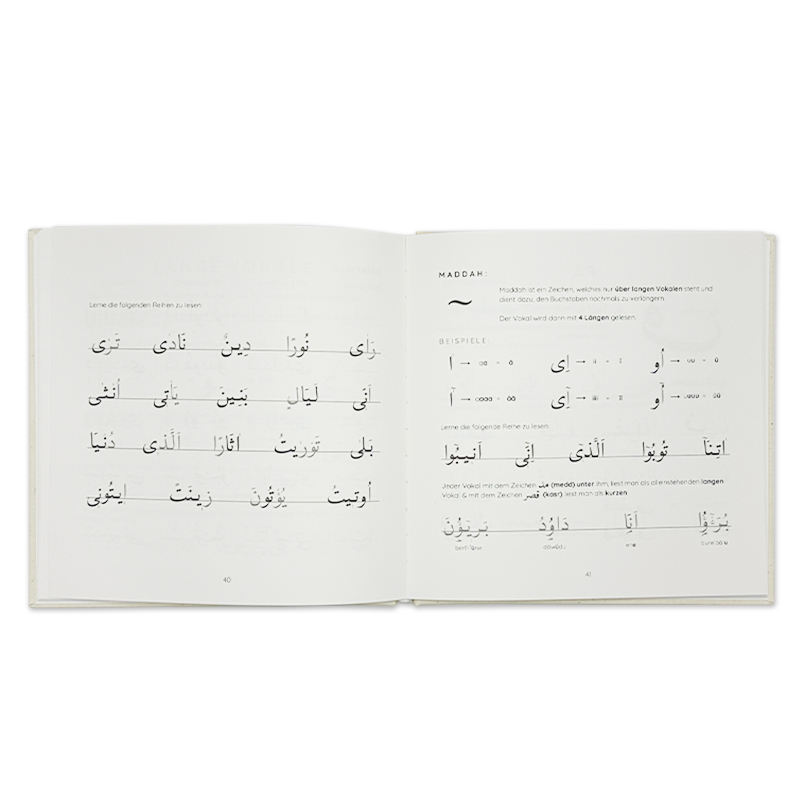 Lerne die folgenden Reihen zu lesen:
رَاٰى نُورًا دِينٌ نَادٰى تَرٰى
اَنّٰى لَيَالٍ بَنِينَ يَأْتٰى اُنْثٰى
بَلٰى تَوْرٰيتُ اٰثَارًا اَلَّذٖى دُنْيَا
اُوتٖيتُ يُؤْتُونَ زٖينَتً اٖيتُونٖى
40
MADDAH:
~
Maddah ist ein Zeichen, welches nur über langen Vokalen steht und
dient dazu, den Buchstaben nochmals zu verlängern.
Der Vokal wird dann mit 4 Längen gelesen.
BEISPIELE:
ا → aa = ā اِى → ii = ī اُو → uu = ū
آ → aaaa = āā اِىٓ → iiii = īī اُوٓ → uuuu = ūū
Lerne die folgende Reihe zu lesen:
اٰتِنَآ تُوبُوٓا اَلَّذٖىٓ اِنّٖىٓ اَنٖيبُوٓا
Jeder Vokal mit dem Zeichen مد (medd) unter ihm, liest man als alleinstehenden langen
Vokal & mit dem Zeichen قصر (kasr), liest man als kurzen.
دَاوُدُ اَنَا
dāwūdu ana
41